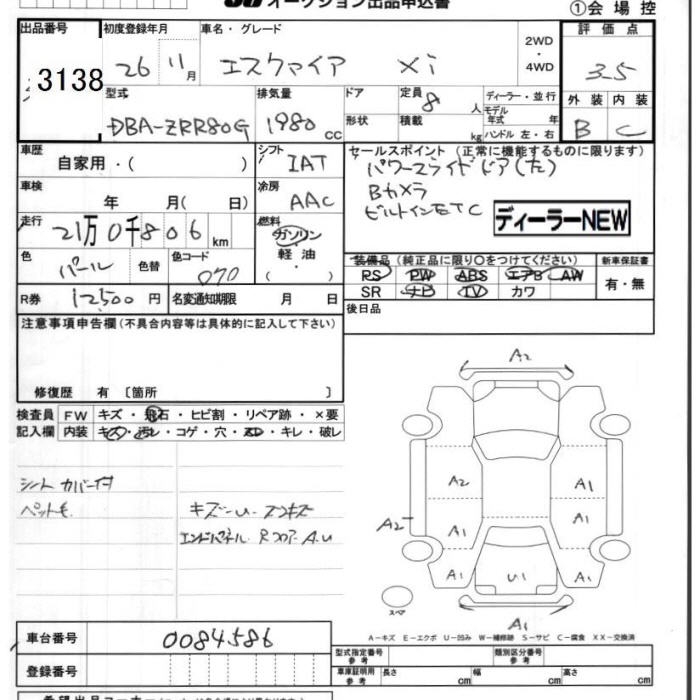 オークション出品申込書
①会場控
出品番号 初度登録年月 車名・グレード 評価点
3138 26 11月 エスクァイア Xi 2WD・4WD 3.5
型式 排気量 ドア 定員 ディーラー・並行 外装 内装
DBA-ZRR80G 1980cc 8人 モデル年式 年 B C
形状 積載 kg ハンドル 左・右
車歴 シフト セールスポイント(正常に機能するものに限ります)
自家用・( ) IAT パワースライドドア(左)
車検 冷房 Bカメラ
年 月( 日) AAC ビルトインETC
走行 燃料 ディーラーNEW
21万0千806km ガソリン
軽油
・( )
色 色替 色コード 装備品(純正品に限り○をつけてください) 新車保証書
パール 070 PS PW ABS エアB AW 有・無
SR ナビ TV カワ
R券 12,500円 名変通知期限 月 日 後日品
注意事項申告欄(不具合内容等は具体的に記入して下さい)
修復歴 有〔箇所 〕
検査員 FW キズ・飛石・ヒビ割・リペア跡・×要
記入欄 内装 キズ・汚レ・コゲ・穴・・キレ・破レ
シートカバー付
ペット毛
キズ～U・スレキズ
エンドパネル Rフロア A.U
A2
A2 A1
A2 A1 A1
A1 U1 A1
A1
スペア
A-キズ E-エクボ U-凹み W-補修跡 S-サビ C-腐食 XX-交換済
車台番号 0084586
型式指定番号 参考 類別区分番号 参考
登録番号 車庫証明用 参考 長さ cm 幅 cm 高さ cm